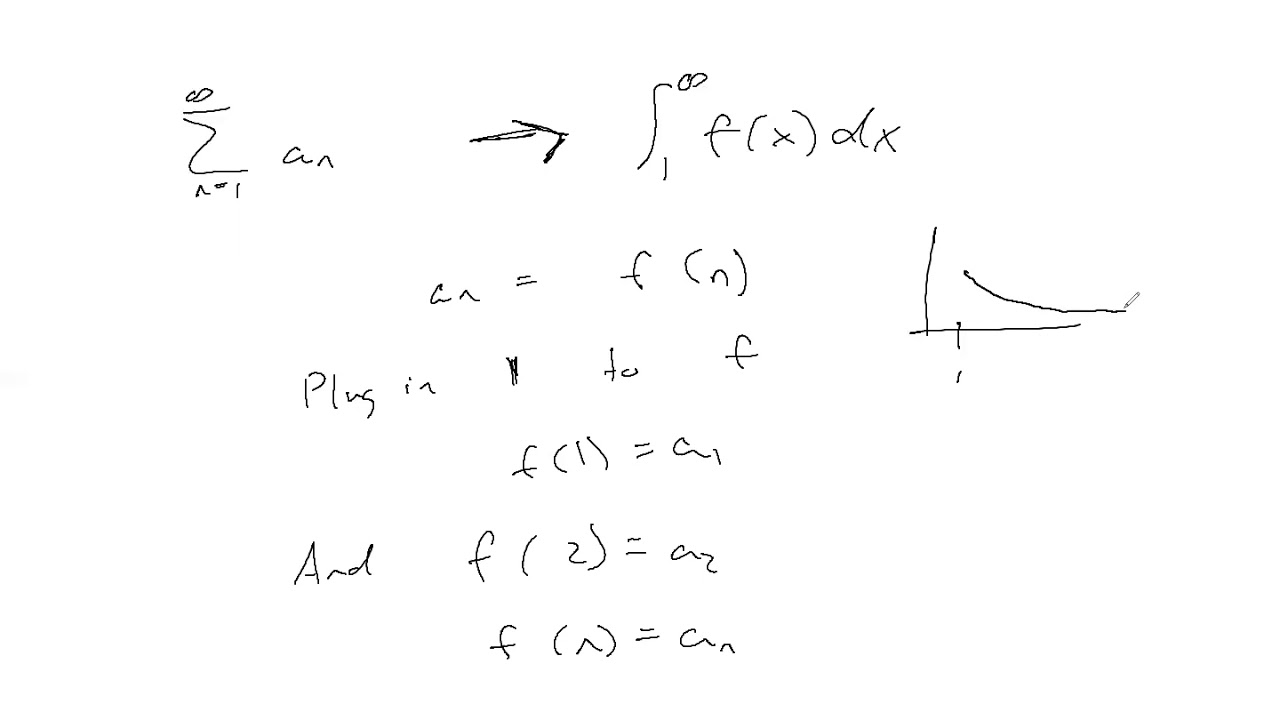 ∞
∑ aₙ → ∫₁^∞ f(x) dx
n=1
aₙ = f(n)
Plug in 1 to f
1
f(1) = a₁
And f(2) = a₂
f(n) = aₙ